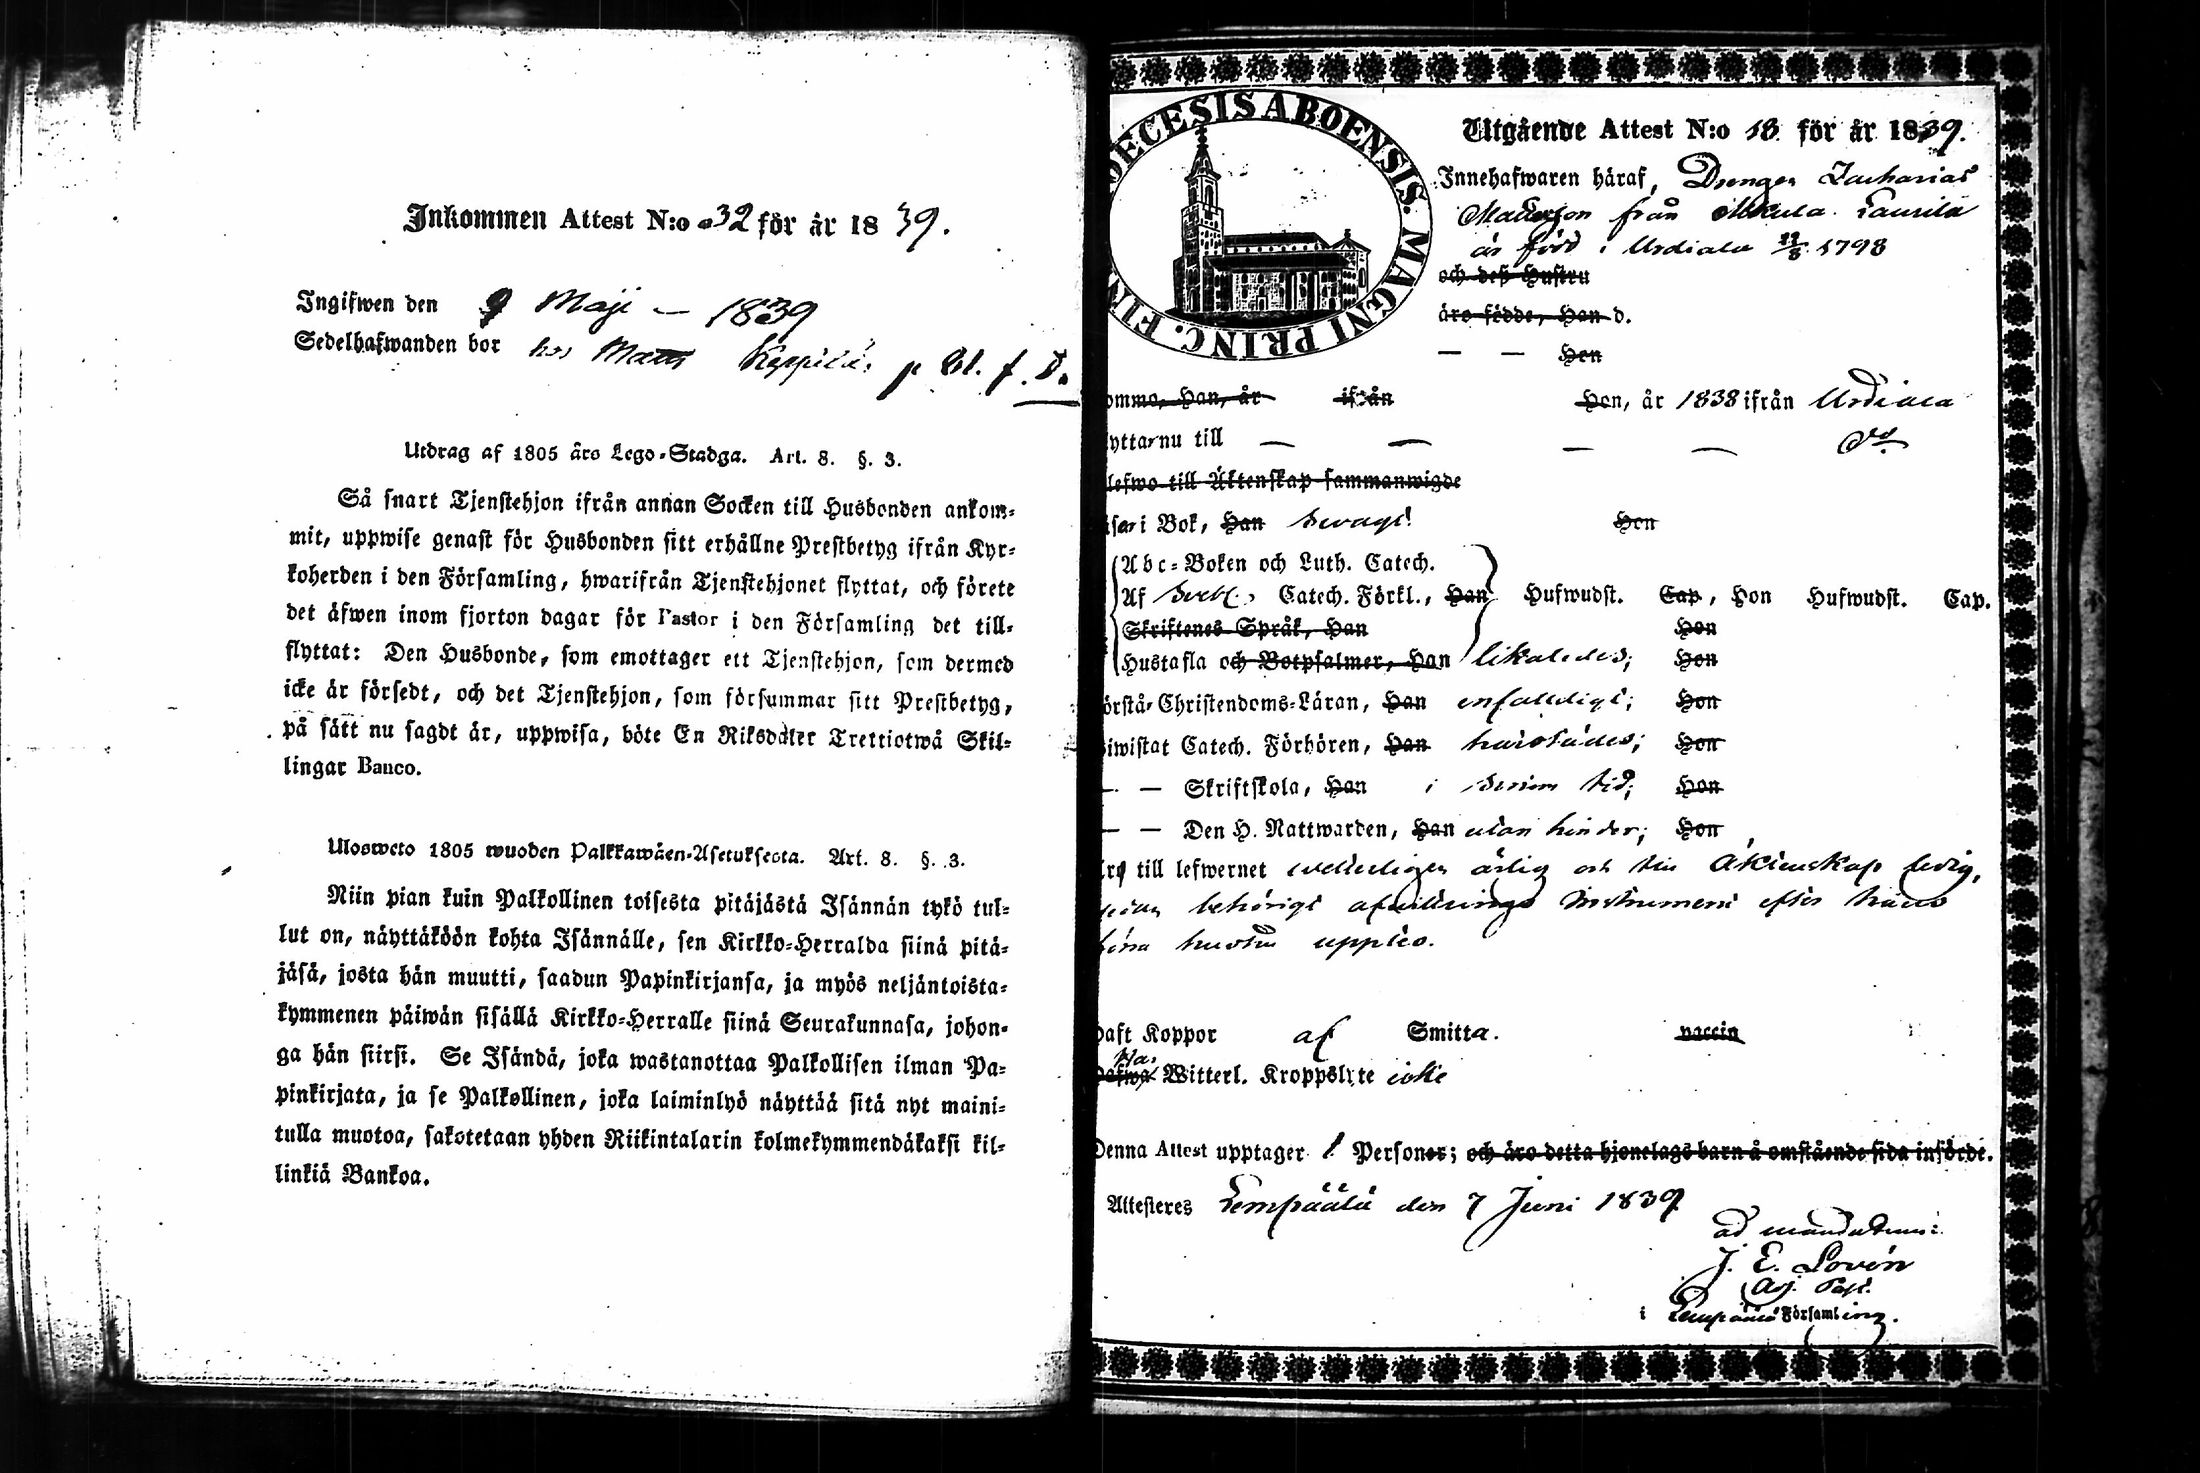 Inkommen Attest N:o 32 för år 1839.
Ingifwen den 9 Maji — 1839
Sedelhafwanden bor hos Matts Keppilä
Utdrag af 1805 års Lego-Stadga. Art. 8. §. 3.
Så snart Tjenstehjon ifrån annan Socken till Husbonden ankom-
mit, uppwise genast för Husbonden sitt erhållne Prestbetyg ifrån Kyr-
koherden i den Församling, hwarifrån Tjenstehjonet flyttat, och förete
det äfwen inom fjorton dagar för Pastor i den Församling det till-
flyttat: Den Husbonde, som emottager ett Tjenstehjon, som dermed
icke är försedt, och det Tjenstehjon, som försummar sitt Prestbetyg,
på sätt nu sagdt är, uppwisa, böte En Riksdaler Trettiotwå Skil-
lingar Banco.
Ulosweto 1805 wuoden Palkkawäen-Asetuksesta. Art. 8. §. 3.
Niin pian kuin Palkollinen toisesta pitäjästä Isännän tykö tul-
lut on, näyttäköön kohta Isännälle, sen Kirkko-Herralda siinä pitä-
jäsä, josta hän muutti, saadun Papinkirjansa, ja myös neljäntoista-
kymmenen päiwän sisällä Kirkko-Herralle siinä Seurakunnasa, johon-
ga hän siirsi. Se Isändä, joka wastanottaa Palkollisen ilman Pa-
pinkirjata, ja se Palkollinen, joka laiminlyö näyttää sitä nyt maini-
tulla muotoa, sakotetaan yhden Riikintalarin kolmekymmendäkaksi kil-
linkiä Bankoa.
DECESIS ABOENSIS. MAGNI PRINC. FIN
Utgående Attest N:o 18. för år 1839.
Innehafwaren häraf, Drengen Zacharias
från Laurila
är född i Urdiala 12/8 1798
och deß Hustru
äro födde, Han d.
— — Hon
omma, Han, år ifrån Hon, år 1838 ifrån Urdiala
yttar nu till — — — — do
lefwo till Äktenskap sammanwigde
i Bok, Han swagt. Hon
Abc-Boken och Luth. Catech.
Af Sveb. Catech. Förkl., Han Hufwudst. Cap, Hon Hufwudst. Cap.
Skriftenes Språk, Han Hon
Hustafla och Botpsalmer, Han likaledes; Hon
örstå Christendoms-Läran, Han enfaldigt; Hon
iwistat Catech. Förhören, Han Hon
— — Skriftskola, Han i sinom tid; Hon
— — Den H. Nattwarden, Han utan hinder; Hon
till lefwernet ärlig och till Äktenskap ledig,
behörigt afwittrings Instrument efter hans
hustru
haft Koppor af Smitta. vaccin
Har Witterl. Kroppslyte icke
Denna Attest upptager 1 Personer; och äro detta hjonelags barn å omstående sida införde.
Attesteres Lempäälä den 7 Juni 1839
ad mandatum:
J. E. Lovén
Adj. Past.
i Lempäälä Församling.